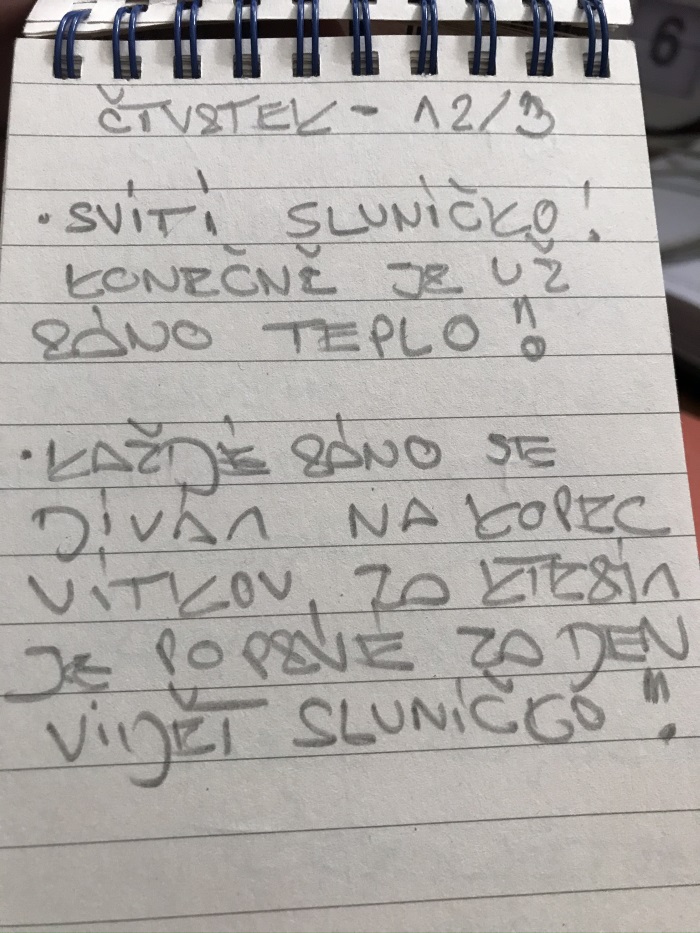 6
ČTVRTEK - 12/3
• SVÍTÍ SLUNÍČKO!
KONEČNĚ JE UŽ
RÁNO TEPLO !!
• KAŽDÉ RÁNO SE
DÍVÁM NA KOPEC
VÍTKOV, ZA KTERÍM
JE POPRVÉ ZA DEN
VIDĚT SLUNÍČKO !!!